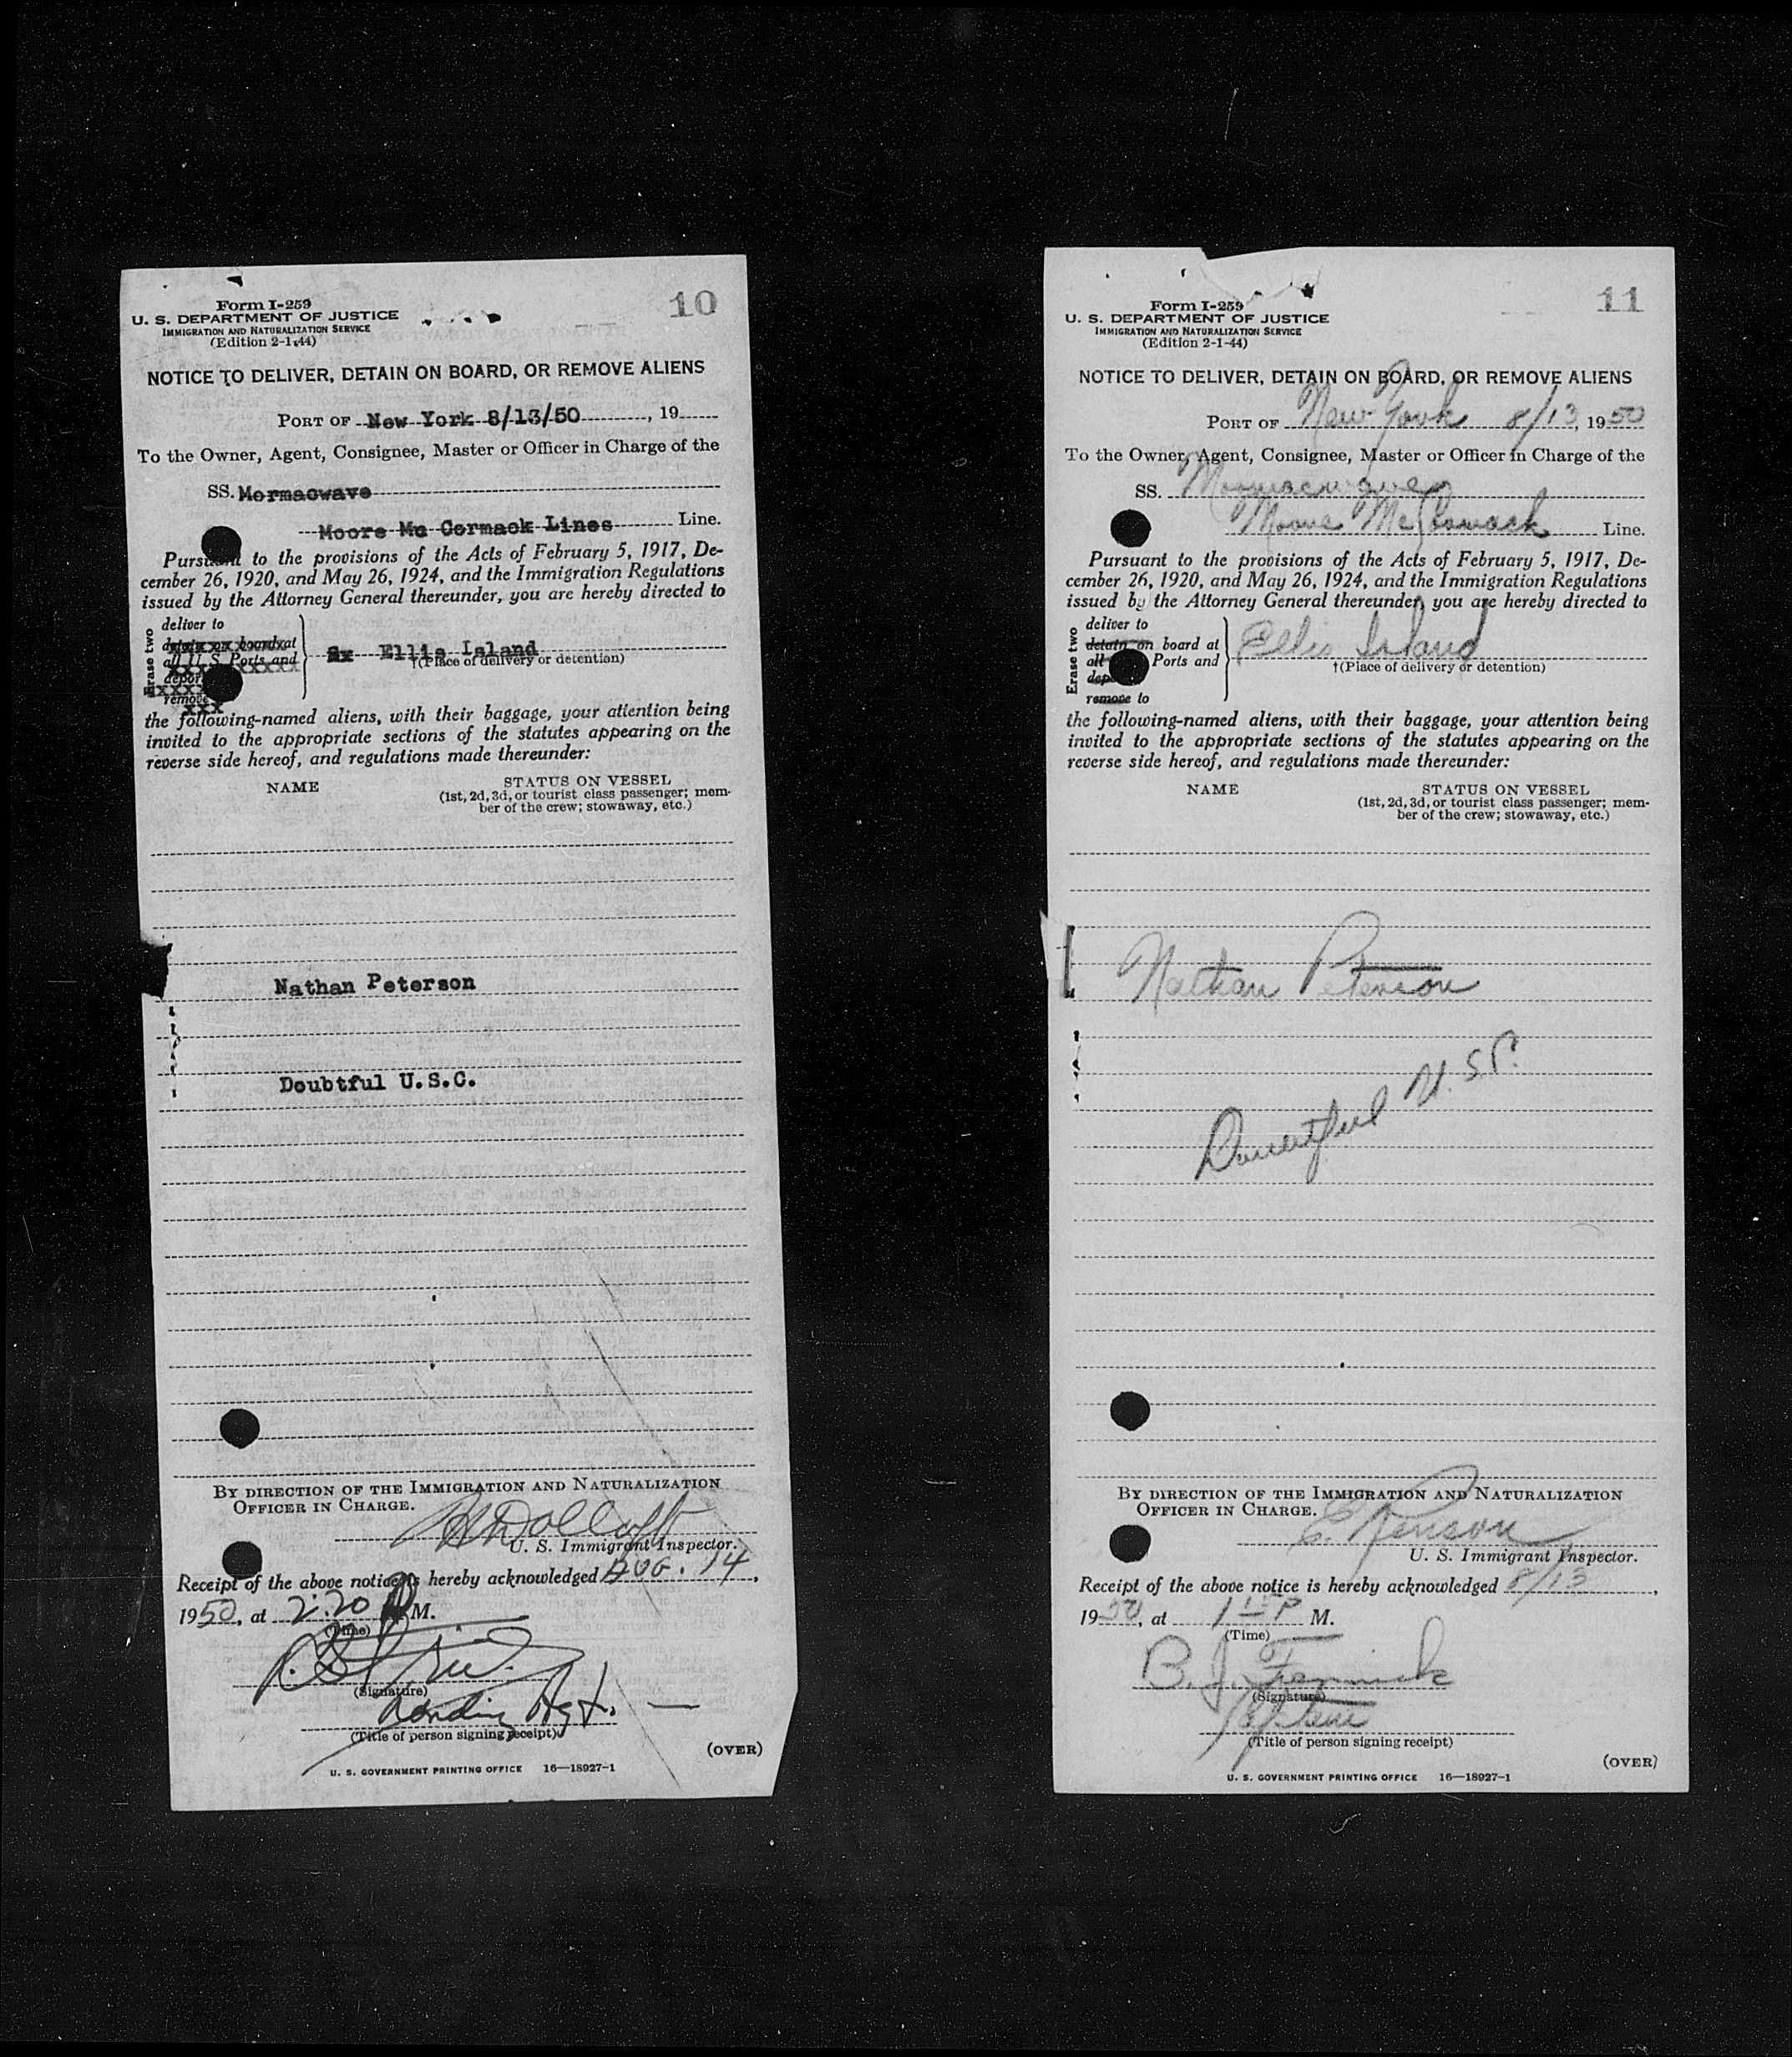 10
Form I-259
U. S. DEPARTMENT OF JUSTICE
IMMIGRATION AND NATURALIZATION SERVICE
(Edition 2-1-44)
NOTICE TO DELIVER, DETAIN ON BOARD, OR REMOVE ALIENS
PORT OF New York 8/13/50, 19
To the Owner, Agent, Consignee, Master or Officer in Charge of the
SS. Mormacwave
Moore Mc Cormack Lines Line.
Pursuant to the provisions of the Acts of February 5, 1917, De-
cember 26, 1920, and May 26, 1924, and the Immigration Regulations
issued by the Attorney General thereunder, you are hereby directed to
Erase two
deliver to
detain on board at
all U. S. Ports and
remove
Ellis Island
†(Place of delivery or detention)
the following-named aliens, with their baggage, your attention being
invited to the appropriate sections of the statutes appearing on the
reverse side hereof, and regulations made thereunder:
NAME STATUS ON VESSEL
(1st, 2d, 3d, or tourist class passenger; mem-
ber of the crew; stowaway, etc.)
Nathan Peterson
Doubtful U.S.C.
BY DIRECTION OF THE IMMIGRATION AND NATURALIZATION
OFFICER IN CHARGE.
U. S. Immigrant Inspector.
Receipt of the above notice is hereby acknowledged AUG. 14,
1950, at 2:20 P M.
(Time)
(Signature)
Agt.
(Title of person signing receipt)
(OVER)
U. S. GOVERNMENT PRINTING OFFICE 16—18927-1
11
Form I-259
U. S. DEPARTMENT OF JUSTICE
IMMIGRATION AND NATURALIZATION SERVICE
(Edition 2-1-44)
NOTICE TO DELIVER, DETAIN ON BOARD, OR REMOVE ALIENS
PORT OF New York 8/13, 1950
To the Owner, Agent, Consignee, Master or Officer in Charge of the
SS. Mormacwave
Moore McCormack Line.
Pursuant to the provisions of the Acts of February 5, 1917, De-
cember 26, 1920, and May 26, 1924, and the Immigration Regulations
issued by the Attorney General thereunder, you are hereby directed to
Erase two
deliver to
detain on board at
all Ports and
remove to
Ellis Island
†(Place of delivery or detention)
the following-named aliens, with their baggage, your attention being
invited to the appropriate sections of the statutes appearing on the
reverse side hereof, and regulations made thereunder:
NAME STATUS ON VESSEL
(1st, 2d, 3d, or tourist class passenger; mem-
ber of the crew; stowaway, etc.)
Nathan Peterson
Doubtful U.S.C.
BY DIRECTION OF THE IMMIGRATION AND NATURALIZATION
OFFICER IN CHARGE.
U. S. Immigrant Inspector.
Receipt of the above notice is hereby acknowledged 8/13,
1950, at P M.
(Time)
B. J.
(Signature)
Captain
(Title of person signing receipt)
(OVER)
U. S. GOVERNMENT PRINTING OFFICE 16—18927-1